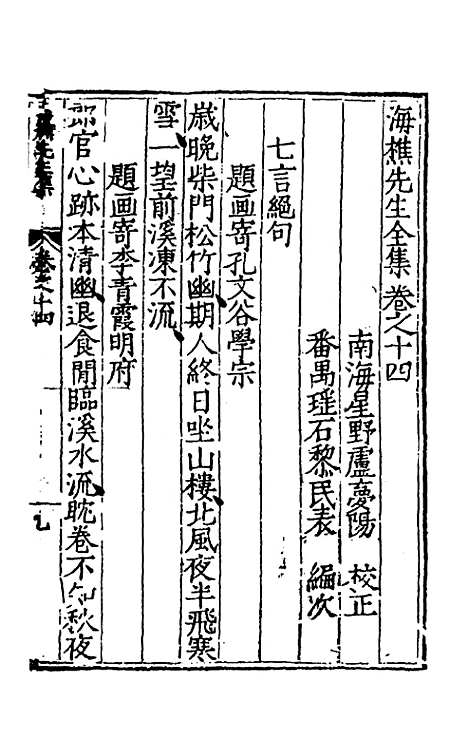 海樵先生全集卷之十四
南海星野盧夢陽 校正
番禺瑤石黎民表 編次
七言絕句
題画寄孔文谷學宗
歲晚柴門松竹幽期人終日坐山樓北風夜半飛寒
雪一望前溪凍不流
題画寄李青霞明府
郎官心跡本清幽退食閒臨溪水流耽卷不知秋夜
海樵先生集 卷之十四